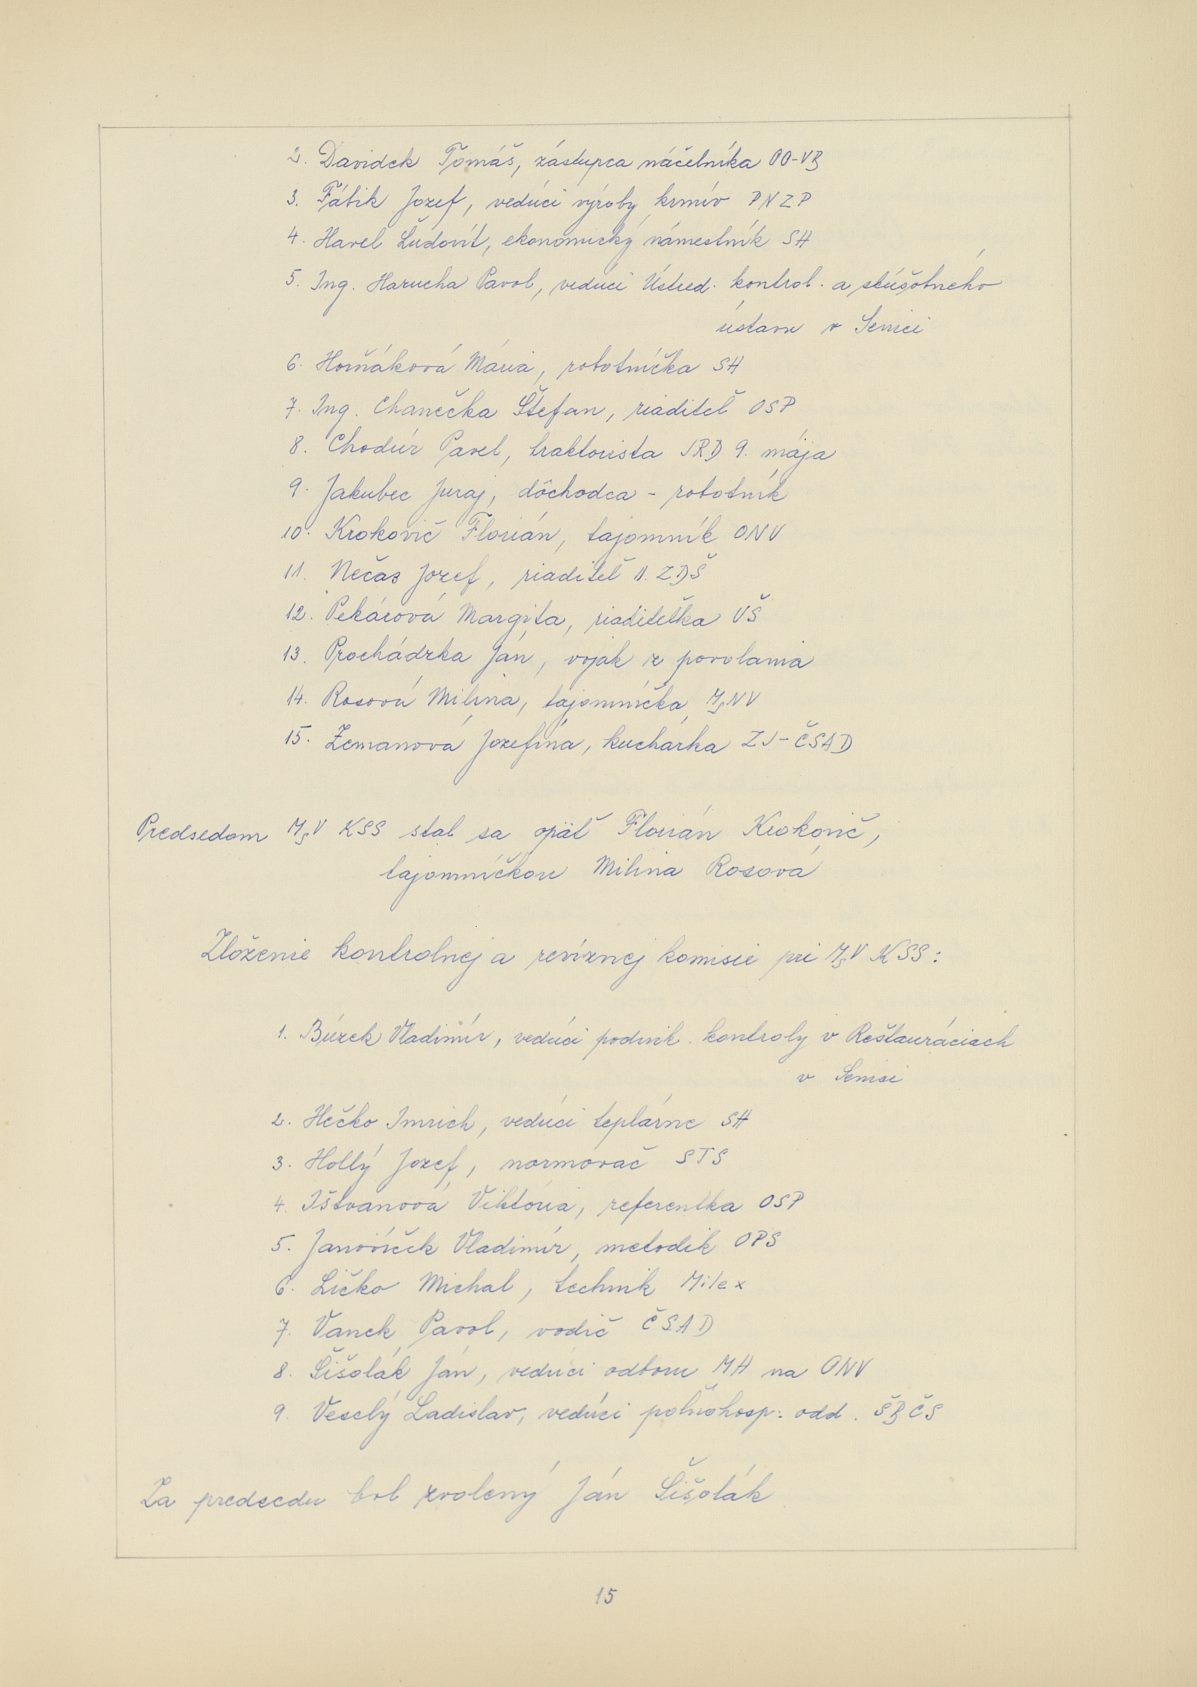 2. Davidek Tomáš, zástupca náčelníka OO-VB
3. Fábik Jozef, vedúci výroby krmív PNZP
4. Havel Ľudovít, ekonomický námestník SH
5. Ing. Harucha Pavol, vedúci Ústred. kontrol. a skúšobného
ústavu v Senici
6. Horňáková Mária, robotníčka SH
7. Ing. Chanečka Štefan, riaditeľ OSP
8. Chodúr Pavel, traktorista JRD 9. mája
9. Jakubec Juraj, dôchodca - robotník
10. Krokovič Florián, tajomník ONV
11. Nečas Jozef, riaditeľ II. ZDŠ
12. Pekárová Margita, riaditeľka VŠ
13. Procházka Ján, voják z povolania
14. Rosová Milina, tajomníčka MsNV
15. Zemanová Jozefína, kuchárka ZJ-ČSAD
Predsedom MsV KSS stal sa opäť Florián Krokovič,
tajomníčkou Milina Rosová
Zloženie kontrolnej a revíznej komisie pri MsV KSS:
1. Búzek Vladimír, vedúci podnik. kontroly v Reštauráciach
v Senici
2. Hečko Imrich, vedúci teplárne SH
3. Hollý Jozef, normovač STS
4. Ištvanová Viktória, referentka OSP
5. Janovíček Vladimír, metodik OPS
6. Ličko Michal, technik Milex
7. Vanek Pavol, vodič ČSAD
8. Šišolák Ján, vedúci odboru MH na ONV
9. Veselý Ladislav, vedúci poľnohosp. odd. ŠBČS
Za predsedu bol zvolený Ján Šišolák
15